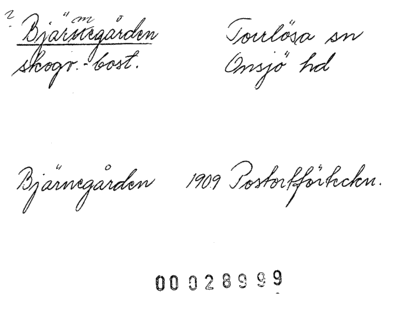 ?
m
Bjärnegården Torrlösa sn
skogv.-bost. Onsjö hd
Bjärnegården 1909 Postortförteckn.
00028999